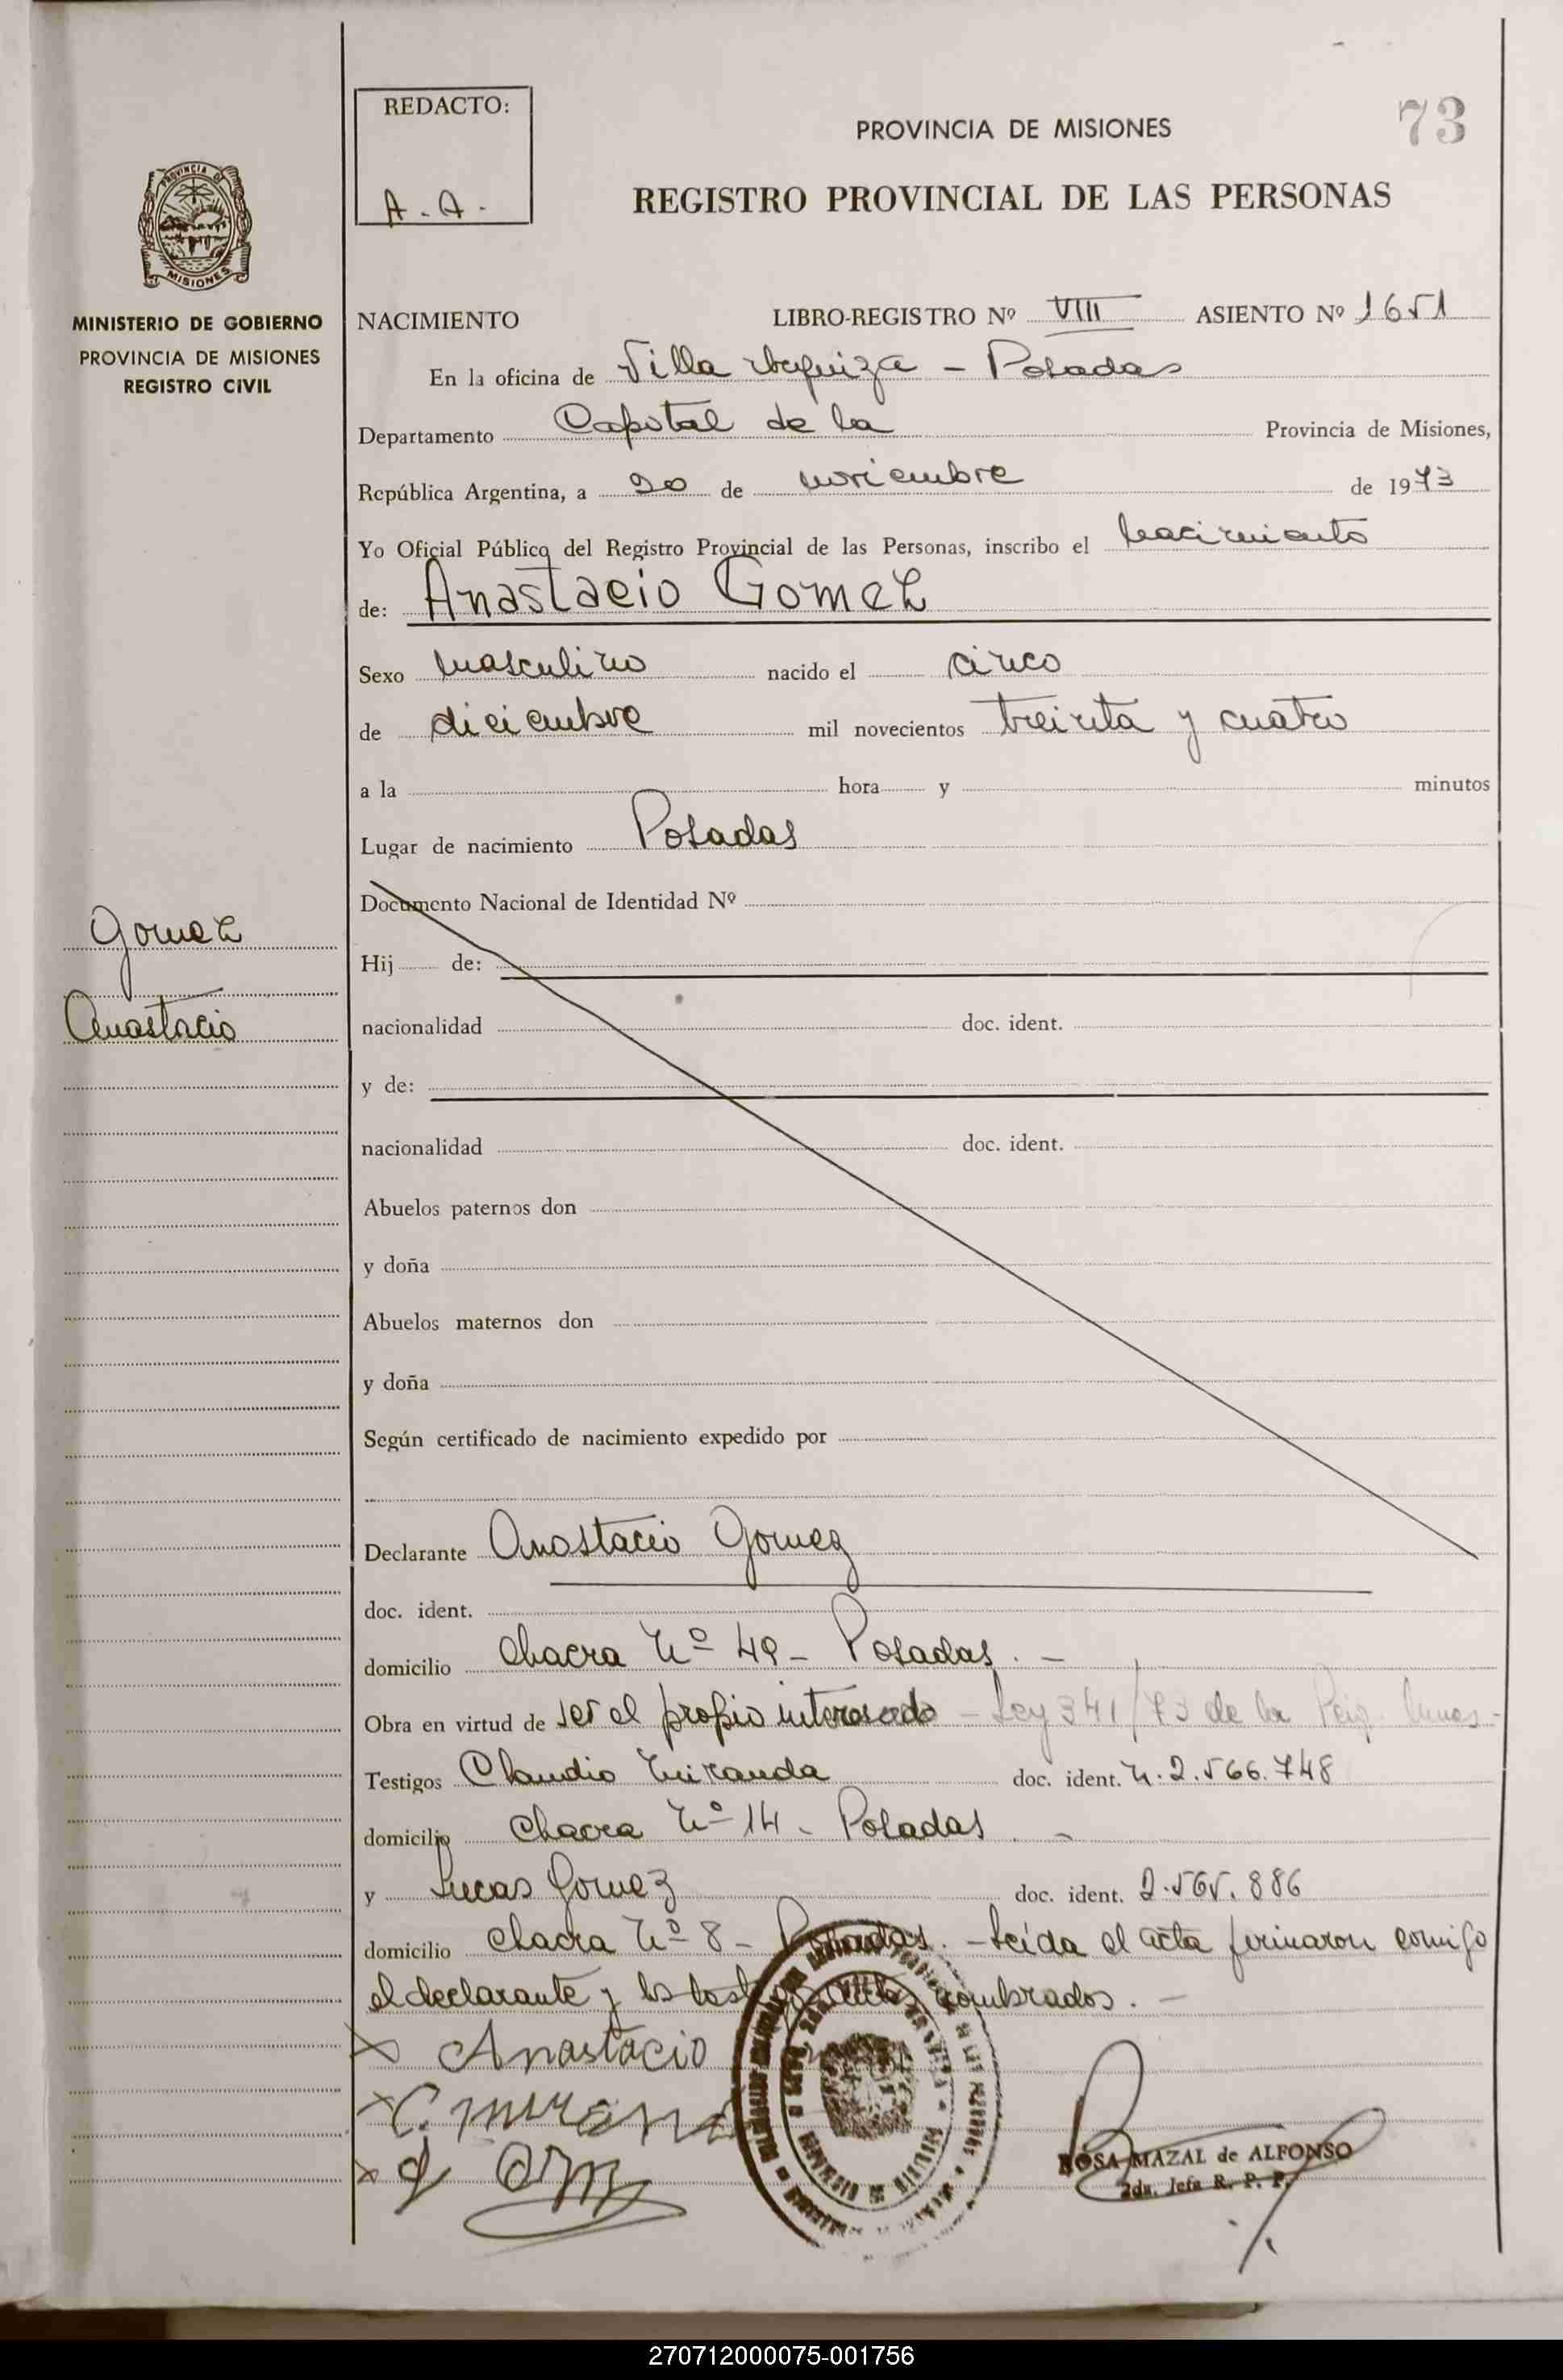 REDACTO:
A. A.
PROVINCIA DE MISIONES
73
REGISTRO PROVINCIAL DE LAS PERSONAS
PROVINCIA D
MISIONES
MINISTERIO DE GOBIERNO
PROVINCIA DE MISIONES
REGISTRO CIVIL
NACIMIENTO LIBRO-REGISTRO Nº VIII ASIENTO Nº 1651
En la oficina de Villa Urquiza - Posadas
Departamento Capital de la Provincia de Misiones,
República Argentina, a 20 de noviembre de 1973
Yo Oficial Público del Registro Provincial de las Personas, inscribo el nacimiento
de: Anastacio Gomez
Sexo masculino nacido el cinco
de diciembre mil novecientos treinta y cuatro
a la hora y minutos
Lugar de nacimiento Posadas
Documento Nacional de Identidad Nº
Gomez
Hij de:
Anastacio
nacionalidad doc. ident.
y de:
nacionalidad doc. ident.
Abuelos paternos don
y doña
Abuelos maternos don
y doña
Según certificado de nacimiento expedido por
Declarante Anastacio Gomez
doc. ident.
domicilio Chacra Nº 49 - Posadas. -
Obra en virtud de ser el propio interesado - Ley 341/73 de la
Testigos Claudio Miranda doc. ident. N. 2.566.748
domicilio Chacra Nº 14 - Posadas. -
y Lucas Gomez doc. ident. 2.565.886
domicilio Chacra Nº 8 - Posadas. - Leída el acta firmaron comigo
el declarante y los testigos nombrados. -
x Anastacio
x C. miran
x
ROSA MAZAL de ALFONSO
2da. Jefa R. P. P.
270712000075-001756